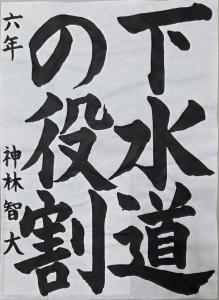 下水道
の役割
六年 神林智大